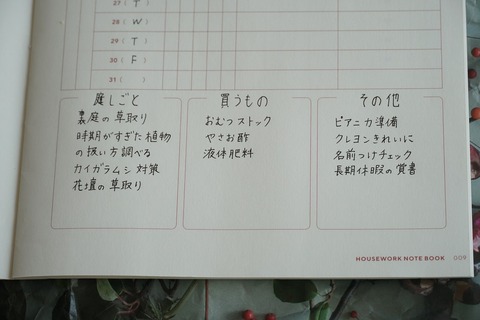 27 ( T )
28 ( W )
29 ( T )
30 ( F )
31 ( )
庭しごと
裏庭の草取り
時期がすぎた植物
の扱い方調べる
カイガラムシ対策
花壇の草取り
買うもの
おむつストック
やさお酢
液体肥料
その他
ピアニカ準備
クレヨンきれいに
名前つけチェック
長期休暇の賞書
HOUSEWORK NOTE BOOK 009